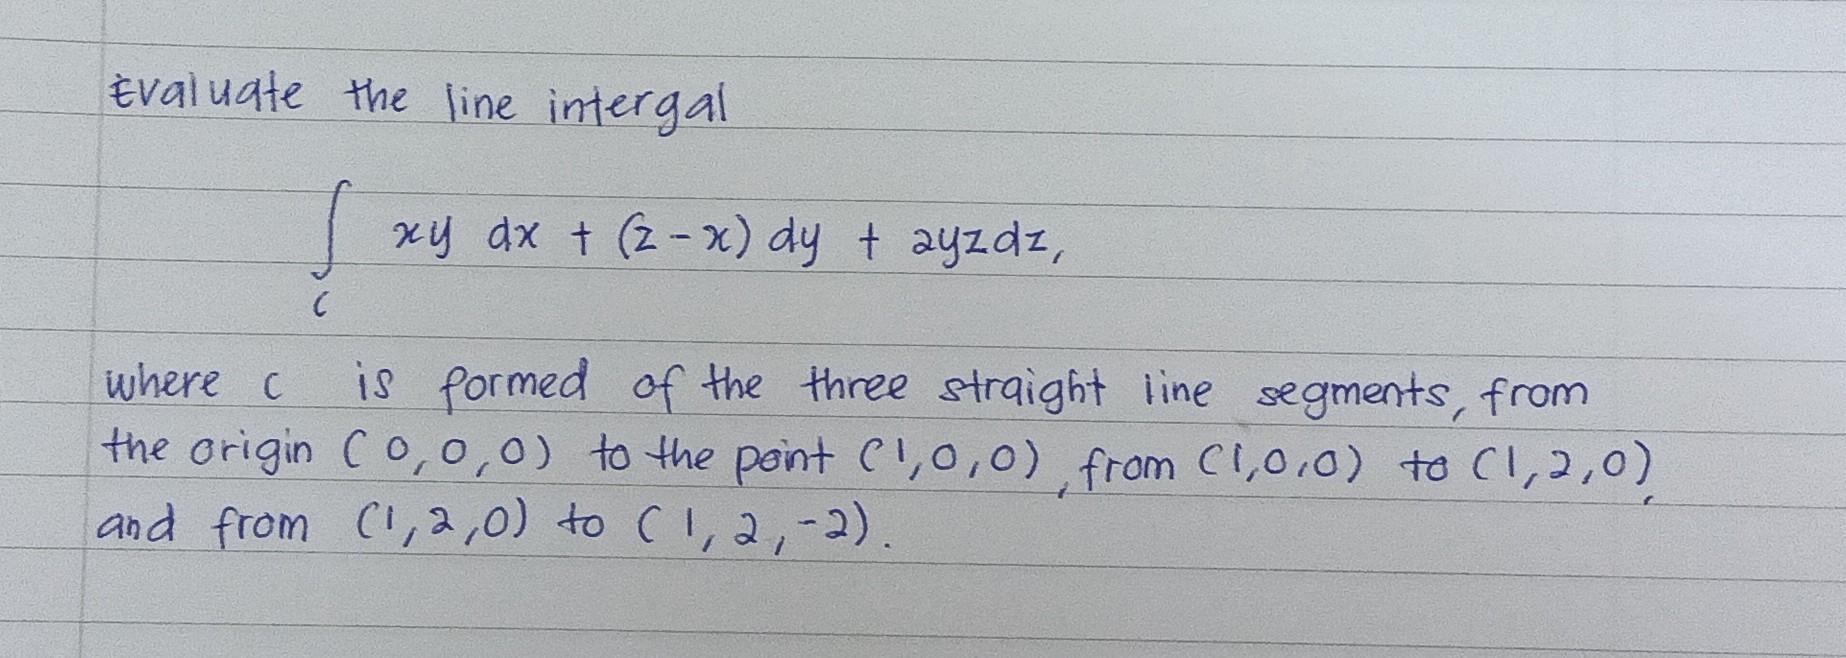 Evaluate the line intergal
∫ xy dx + (z - x) dy + 2yzdz,
c
where c is formed of the three straight line segments, from
the origin (0,0,0) to the point (1,0,0), from (1,0,0) to (1,2,0),
and from (1,2,0) to (1,2,-2).